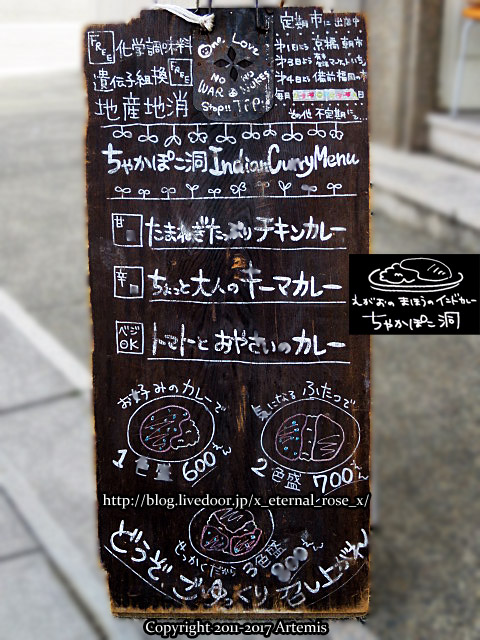 FREE 化学調味料
遺伝子組換 FREE
地産地消
One Love
NO WAR NO NUKES
Stop!! TPP!
定期市に出店中
第1日よう 京橋朝市
第3日よう
第4日よう 備前福岡の市
毎月
その他 不定期に…
ちゃかぽこ洞 Indian Curry Menu
甘 たまねぎたっぷりチキンカレー
辛 ちょっと大人のキーマカレー
ベジOK トマトとおやさいのカレー
お好みのカレーで
1色盛 600えん
気になる ふたつで
2色盛 700えん
せっかくだから 3色盛 800えん
どうぞ、ごゆっくり 召し上がれ
えがおの まほうの インドカレー
ちゃかぽこ洞
http://blog.livedoor.jp/x_eternal_rose_x/
Copyright 2011-2017 Artemis